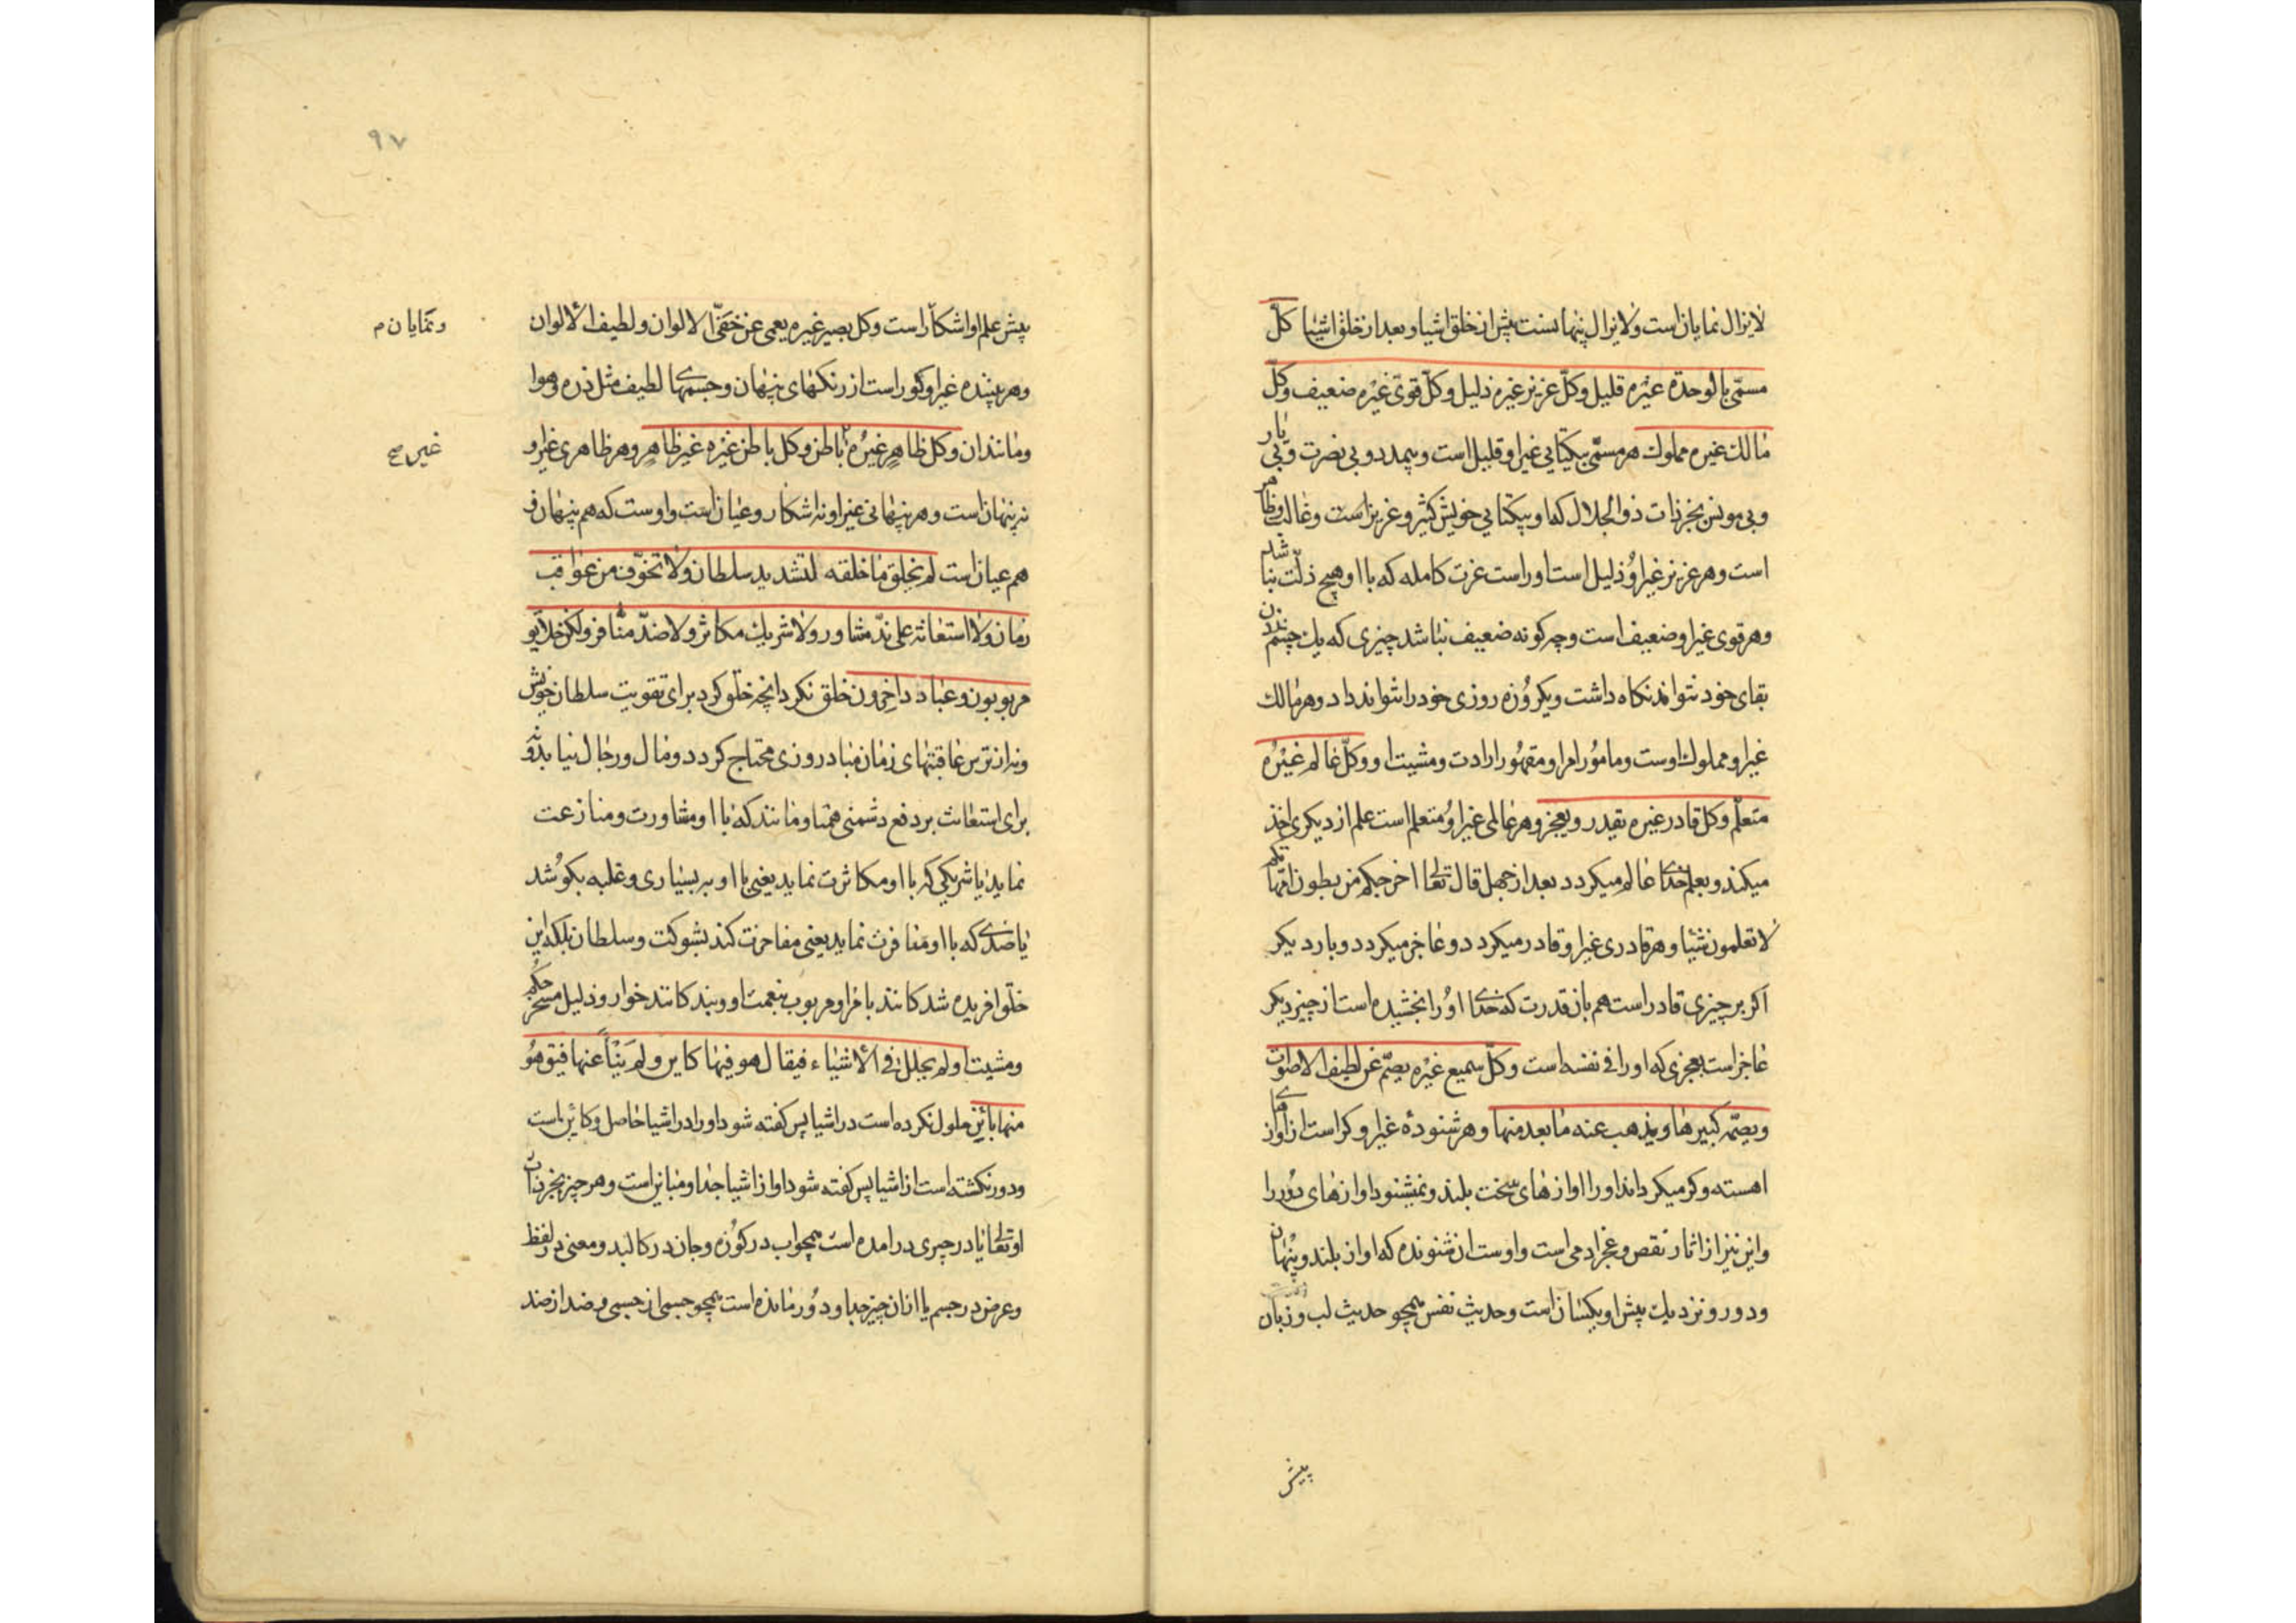 لایزال نمایان است ولایزال پنهانست پیش از خلق اشیا و بعد از خلق اشیا کلّ
مسمّی بالوحدة غیره قلیل وکلّ عزیز غیره ذلیل وکلّ قوی غیره ضعیف وکلّ
مالك غیره مملوك هر مسمّی بیکتایی غیر او قلیل است و بیمدد و بی نصرت و بی یار
و بی مونس بجز ذات ذو الجلال که او بیکتایی خویش کثیر و عزیز است و غالب و ظاهر
است و هر عزیز غیر او ذلیل است او راست عزت کامله که با او هیچ ذلّت نباشد
و هر قوی غیر او ضعیف است و چه کونه ضعیف نباشد چیزی که یك چشم زدن
بقای خود نتواند نکاه داشت و یکروزه روزی خود را نتواند داد و هر مالك
غیر او مملوك اوست و مامور امر او مقهور ارادت و مشیت او وکلّ عالم غیره
متعلّم وکل قادر غیره یقدر و یعجز و هر عالمی غیر او متعلم است علم از دیکری اخذ
میکند و بعلم خدای عالم میکردد بعد از جهل قال تعالی اخرجکم من بطون امّهاتکم
لا تعلمون شیئا و هر قادری غیر او قادر میکردد و عاجز میکردد و بار دیکر
اکر بر چیزی قادر است هم بان قدرت که خدای او را بخشیده است از چیز دیکر
عاجز است بعجزی که او را فی نفسه است وکلّ سمیع غیره یصمّ عن لطیف الاصوات
و یصمّه کبیرها و یذهب عنه ما بعد منها و هر شنودهٔ غیر او کر است از اوازهای
اهسته و کر میکرداند او را اوازهای سخت بلند و نمیشنود اوازهای دور را
و این نیز از اثار نقص و عجز ادمی است و اوست ان شنونده که اواز بلند و پنهان
و دور و نزدیك پیش او یکسان است و حدیث نفس همچو حدیث لب و زبان
پیش
۹۷
پیش علم او اشکار است وکل بصیر غیره یعمی عن خفیّ الالوان و لطیف الألوان
و نمایان م
و هر بیننده غیر او کور است از رنکهای پنهان و جسمهای لطیف مثل ذره و هوا
و مانند ان وکل ظاهر غیره باطن وکل باطن غیره غیر ظاهر و هر ظاهری غیر او
غیر صح
نه پنهان است و هر پنهانی غیر او نه اشکار و عیان است و اوست که هم پنهان و
هم عیان است لم یخلق ما خلقه لتشدید سلطان ولا تخوّف من عواقب
زمان ولا استعانة علی ندّ مشاور ولا شریك مکاثر ولا ضدّ منافر ولکن خلایق
مربوبون و عباد داخرون خلق نکرد انچه خلق کرد برای تقویت سلطان خویش
و نه از ترس عاقبتهای زمان مبادا روزی محتاج کردد و مال و رجال نیابد و نه
برای استعانت بر دفع دشمنی همتا و مانند که با او مشاورت و منازعت
نماید یا شریکی که با او مکاثرت نماید یعنی با او بر بسیاری و غلبه بکوشد
یا ضدی که با او منافرت نماید یعنی مفاخرت کند بشوکت و سلطان بلکه این
خلق افریده شدکانند بامر او مربوب بنعمت او و بندکانند خوار و ذلیل مسخر حکم
و مشیت او لم یحلل فی الأشیاء فیقال هو فیها کاین ولم ینأ عنها فیق هو
منها بائن حلول نکرده است در اشیا پس کفته شود او را در اشیا حاصل و کائن است
و دور نکشته است از اشیا پس کفته شود او از اشیا جدا و مباین است و هر چیز بجز ذات
او تعالی یا در چیزی در امده است همچو اب در کوزه و جان در کالبد و معنی در لفظ
و عرض در جسم یا از ان چیز جدا و دور مانده است همچو جسمی از جسمی و ضد از ضد